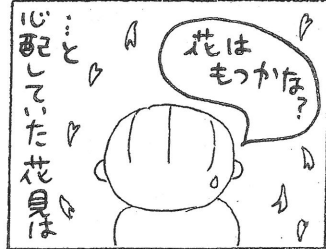 花は
もつかな？
…と
心配していた花見は